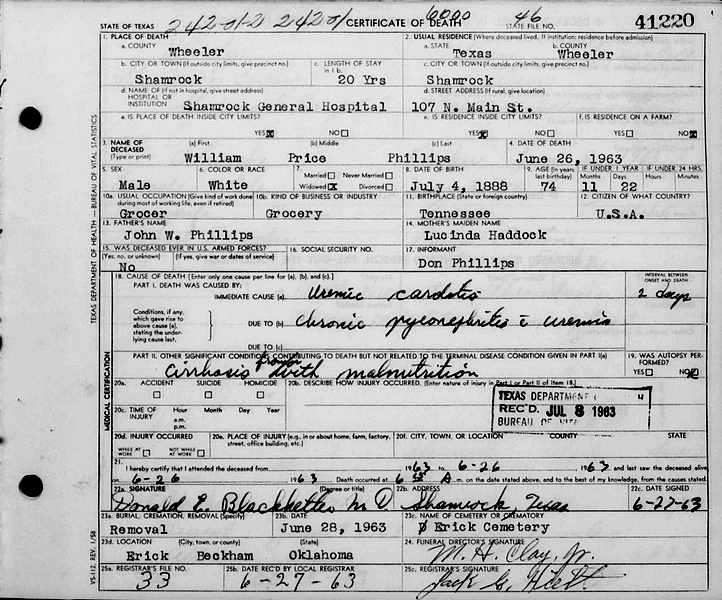 242-01-2 242-01 6000 46
STATE OF TEXAS CERTIFICATE OF DEATH STATE FILE NO. 41220
1. PLACE OF DEATH 2. USUAL RESIDENCE (Where deceased lived. If institution: residence before admission)
a. COUNTY a. STATE b. COUNTY
Wheeler Texas Wheeler
b. CITY OR TOWN (If outside city limits, give precinct no.) c. LENGTH OF STAY in 1 b. c. CITY OR TOWN (If outside city limits, give precinct no.)
Shamrock 20 Yrs Shamrock
d. NAME OF (If not in hospital, give street address) HOSPITAL OR INSTITUTION d. STREET ADDRESS (If rural, give location)
Shamrock General Hospital 107 N. Main St.
e. IS PLACE OF DEATH INSIDE CITY LIMITS? e. IS RESIDENCE INSIDE CITY LIMITS? f. IS RESIDENCE ON A FARM?
YES X NO YES X NO YES NO X
3. NAME OF DECEASED (Type or print) (a) First (b) Middle (c) Last 4. DATE OF DEATH
William Price Phillips June 26, 1963
5. SEX 6. COLOR OR RACE 7. Married Never Married 8. DATE OF BIRTH 9. AGE (In years last birthday) IF UNDER 1 YEAR IF UNDER 24 HRS.
Widowed X Divorced Months Days Hours Minutes
Male White July 4, 1888 74 11 22
10a. USUAL OCCUPATION (Give kind of work done during most of working life, even if retired) 10b. KIND OF BUSINESS OR INDUSTRY 11. BIRTHPLACE (State or foreign country) 12. CITIZEN OF WHAT COUNTRY?
Grocer Grocery Tennessee U.S.A.
13. FATHER'S NAME 14. MOTHER'S MAIDEN NAME
John W. Phillips Lucinda Haddock
15. WAS DECEASED EVER IN U.S. ARMED FORCES? 16. SOCIAL SECURITY NO. 17. INFORMANT
(Yes, no, or unknown) (If yes, give war or dates of service)
No Don Phillips
18. CAUSE OF DEATH [Enter only one cause per line for (a), (b), and (c).] INTERVAL BETWEEN ONSET AND DEATH
PART I. DEATH WAS CAUSED BY:
IMMEDIATE CAUSE (a) Uremic 2 days
Conditions, if any, which gave rise to above cause (a), stating the underlying cause last.
DUE TO (b) chronic uremia
DUE TO (c)
PART II. OTHER SIGNIFICANT CONDITIONS CONTRIBUTING TO DEATH BUT NOT RELATED TO THE TERMINAL DISEASE CONDITION GIVEN IN PART I(a) 19. WAS AUTOPSY PERFORMED?
Cirrhosis with malnutrition YES NO X
20a. ACCIDENT SUICIDE HOMICIDE 20b. DESCRIBE HOW INJURY OCCURRED. (Enter nature of injury in Part I or Part II of item 18.)
20c. TIME OF INJURY Hour Month Day Year
a.m.
p.m.
TEXAS DEPARTMENT
REC'D. JUL 8 1963
BUREAU OF
20d. INJURY OCCURRED WHILE AT WORK NOT WHILE AT WORK 20e. PLACE OF INJURY (e.g., in or about home, farm, factory, street, office building, etc.) 20f. CITY, TOWN, OR LOCATION COUNTY STATE
21. I hereby certify that I attended the deceased from 1963 to 6-26 1963 and last saw the deceased alive
on 6-26 1963 Death occurred at A m. on the date stated above, and to the best of my knowledge, from the causes stated.
22a. SIGNATURE (Degree or title) 22b. ADDRESS 22c. DATE SIGNED
Donald E. M D Shamrock, Texas 6-27-63
23a. BURIAL, CREMATION, REMOVAL (Specify) 23b. DATE 23c. NAME OF CEMETERY OR CREMATORY
Removal June 28, 1963 Erick Cemetery
23d. LOCATION (City, town, or county) (State) 24. FUNERAL DIRECTOR'S SIGNATURE
Erick Beckham Oklahoma M. H. Clay, Jr.
25a. REGISTRAR'S FILE NO. 25b. DATE REC'D BY LOCAL REGISTRAR 25c. REGISTRAR'S SIGNATURE
33 6-27-63 Jack
TEXAS DEPARTMENT OF HEALTH — BUREAU OF VITAL STATISTICS
MEDICAL CERTIFICATION
VS-112, REV. 1/58